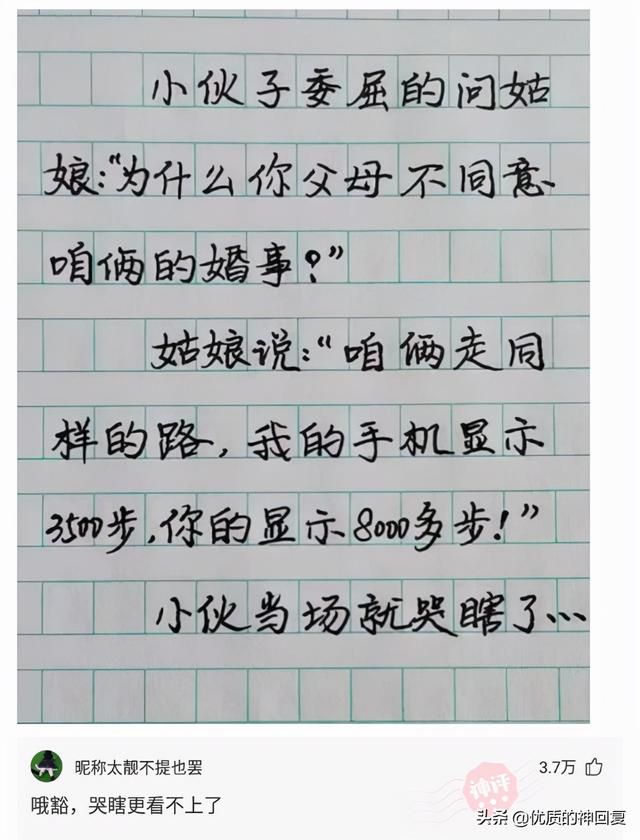 小伙子委屈的问姑
娘:“为什么你父母不同意
咱俩的婚事?”
姑娘说:“咱俩走同
样的路，我的手机显示
3500步,你的显示8000多步!”
小伙当场就哭瞎了...
昵称太靓不提也罢
3.7万
哦豁，哭瞎更看不上了
神评
头条 @优质的神回复